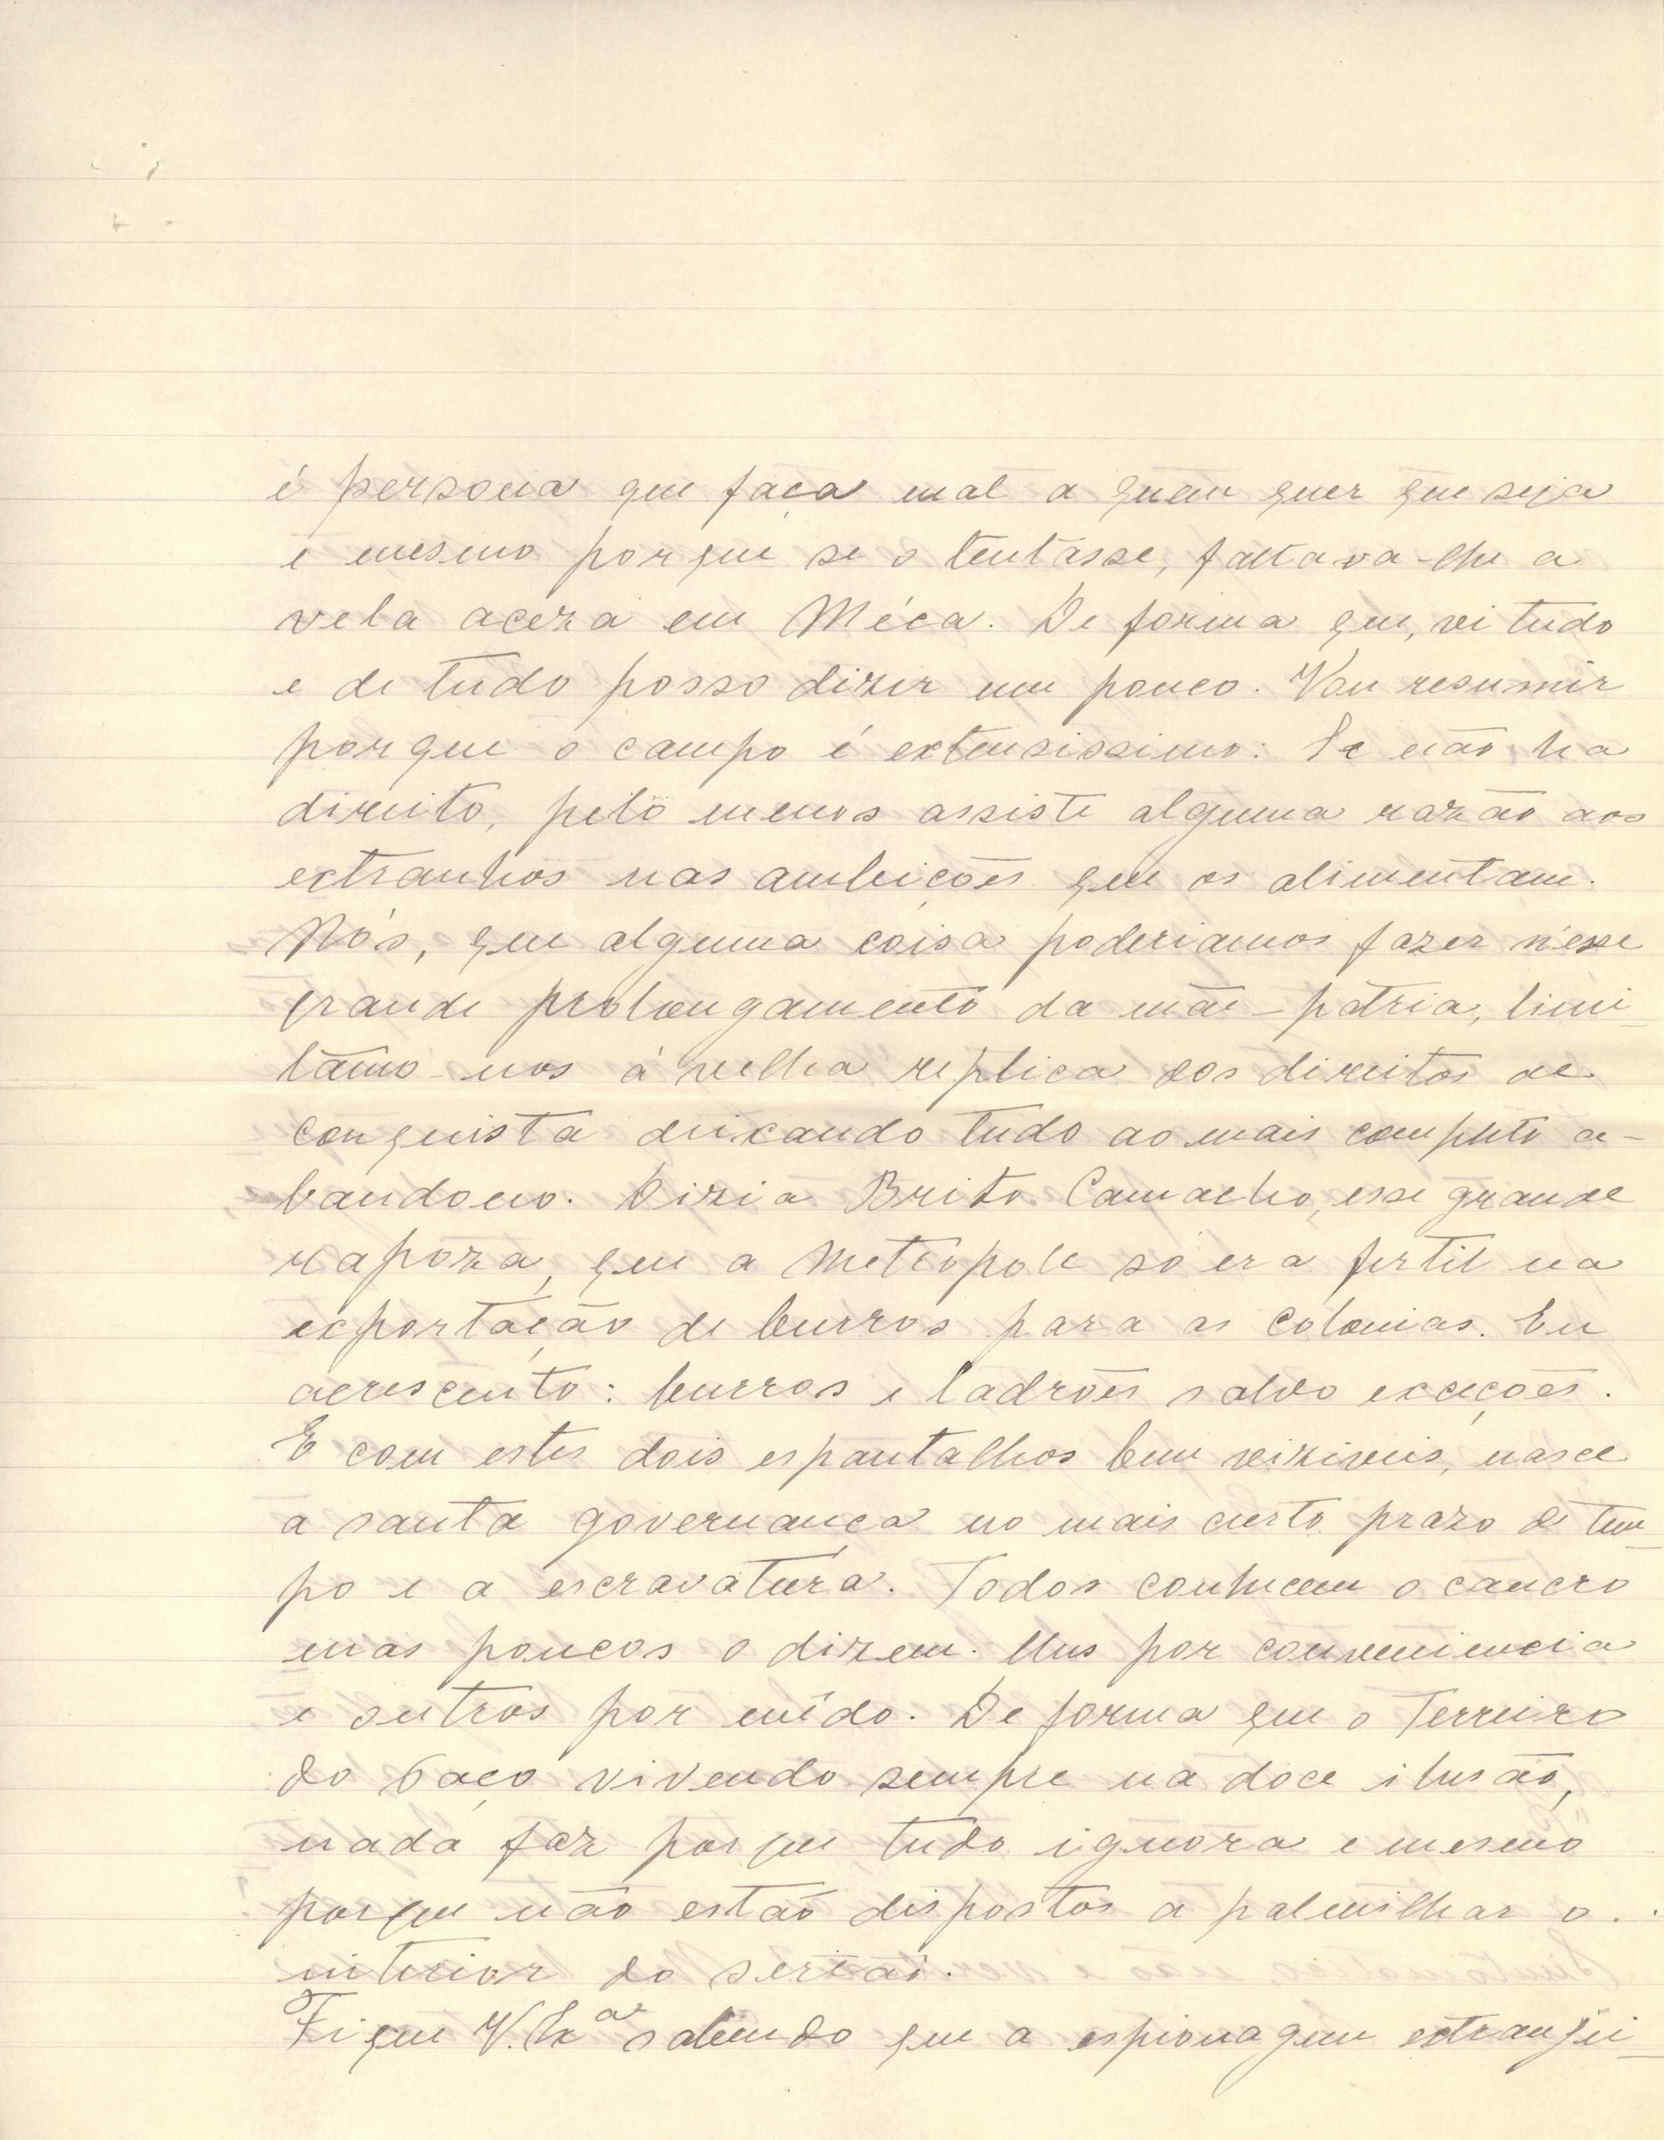 é persona que faça mal a quem quer que seja
e mesmo porque se o tentasse, faltava-lhe a
vela aceza em Méca. De forma que, vi tudo
e de tudo posso dizer um pouco. Vou resumir
porque o campo é extensissimo: Se não ha
direito, pelo menos assiste alguma razão aos
extranhos nas ambições que os alimentam.
Nós, que alguma coisa poderiamos fazer n'esse
grande prolongamento da mãe-patria, limi-
tâmo-nos á velha replica dos direitos de
conquista deixando tudo ao mais completo a-
bandono. Dizia Brito Camacho, esse grande
rapoza, que a Metropole só era fertil na
exportação de burros para as colonias. Eu
acrescento: burros e ladrões salvo exceções.
E com estes dois espantalhos bem viziveis, nasce
a santa governança no mais curto prazo de tem-
po e a escravatura. Todos conhecem o cancro
mas poucos o dizem. Uns por conveniencia
e outros por mêdo. De forma que o Terreiro
do Paço vivendo sempre na doce ilusão,
nada faz porque tudo ignora e mesmo
porque não estão dispostos a palmilhar o
interior do sertão.
Fique V. Exª sabendo que a espionagem extrangei-